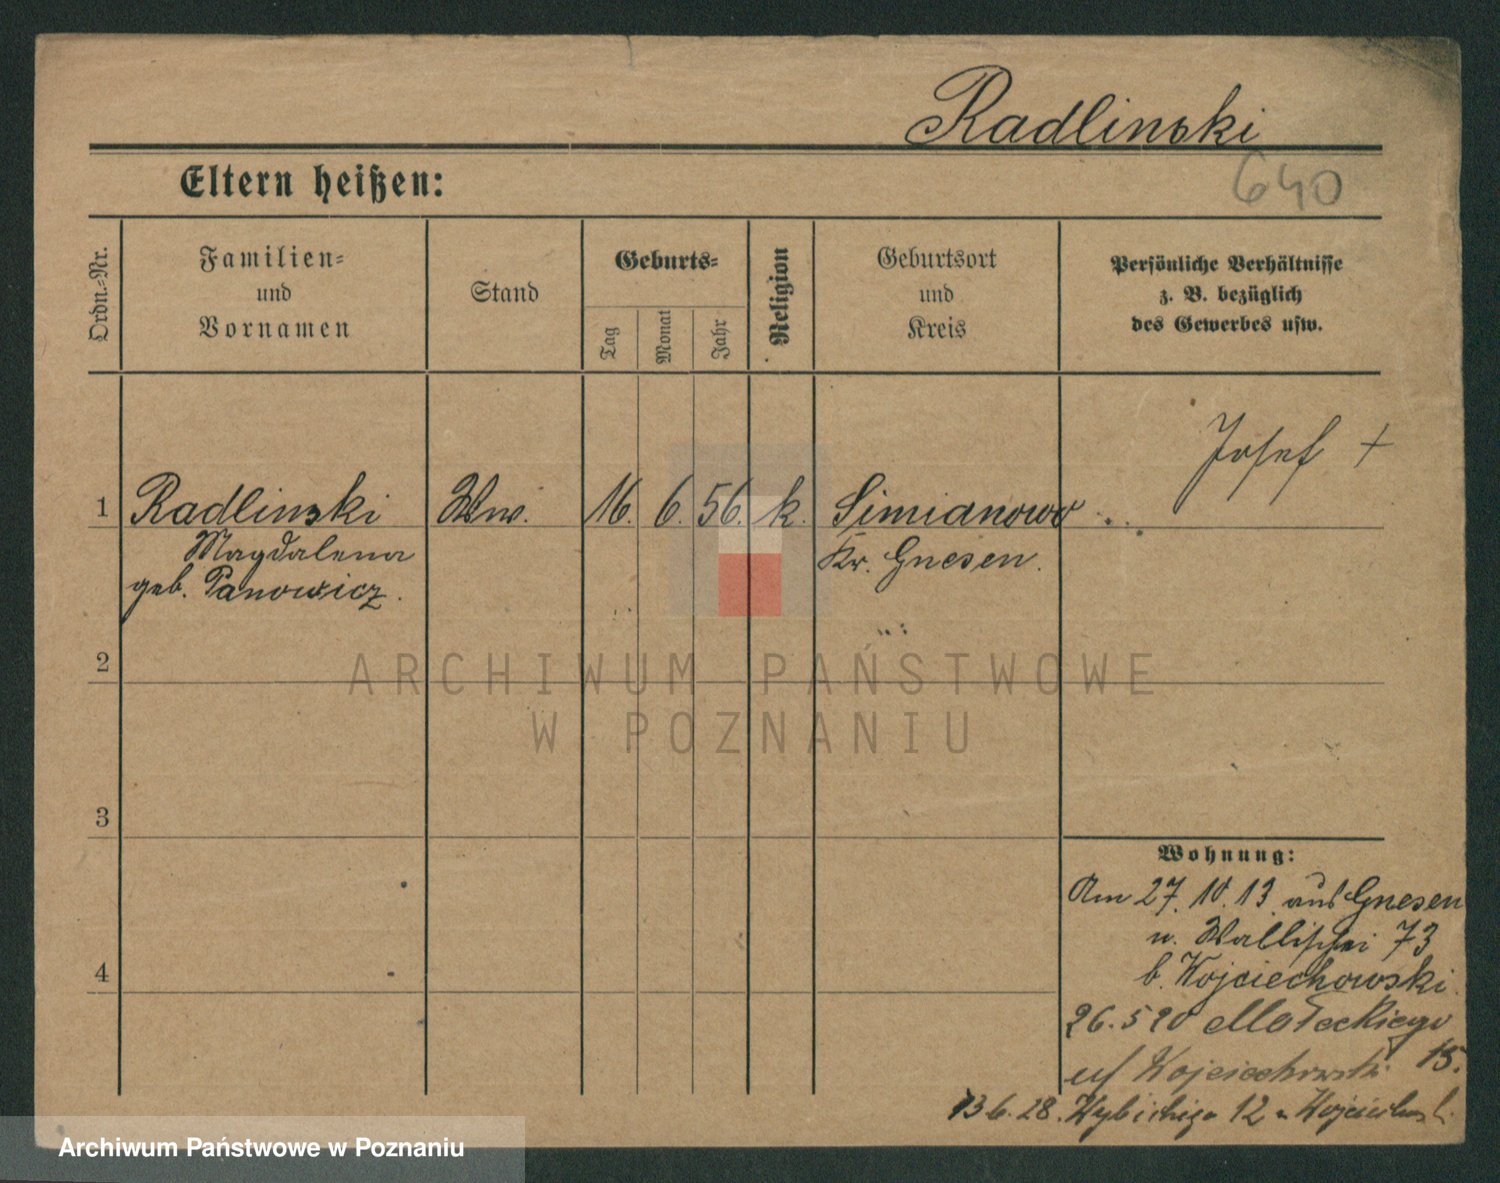 Radlinski
640
Eltern heißen:
Ordn.-Nr.
Familien-
und
Vornamen
Stand
Geburts-
Tag
Monat
Jahr
Religion
Geburtsort
und
Kreis
Persönliche Verhältnisse
z. B. bezüglich
des Gewerbes usw.
Josef +
1 Radlinski Ww. 16. 6. 56. k. Simianowo
Magdalena Kr. Gnesen.
geb. Panowicz.
2
ARCHIWUM PAŃSTWOWE
W POZNANIU
3
Wohnung:
Am 27. 10. 13 aus Gnesen
n. Wallischei 73
b. Wojciechowski.
4
26. 5 20 Małeckiego
15.
u/ Wojciechowski
13 6. 28. 12
Archiwum Państwowe w Poznaniu